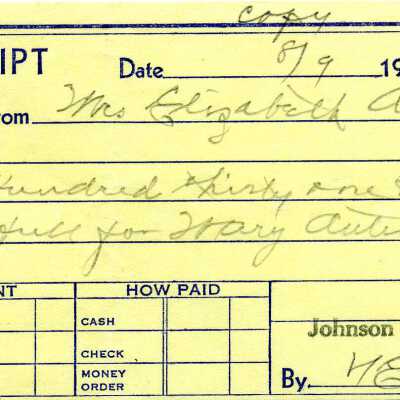 copy
IPT Date 8/9 19
rom Mrs Elizabeth A
Hundred thirty one
full for Mary
NT HOW PAID
CASH
CHECK
MONEY
ORDER
Johnson
By. HE